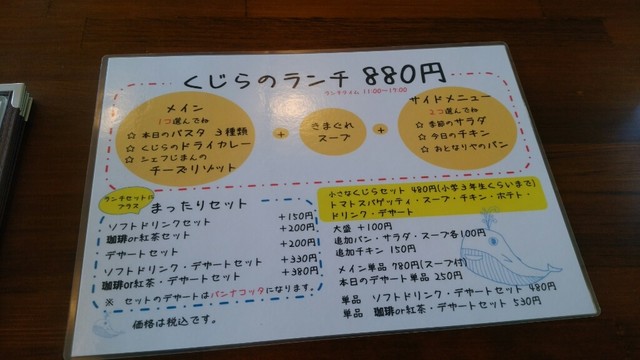 くじらのランチ 880円
ランチタイム 11:00～17:00
メイン
1コ選んでね
☆ 本日のパスタ 3種類
☆ くじらのドライカレー
☆ シェフじまんの
チーズリゾット
+
きまぐれ
スープ
+
サイドメニュー
2コ選んでね
☆ 季節のサラダ
☆ 今日のチキン
☆ おとなりやのパン
ランチセットに
プラス
まったりセット
ソフトドリンクセット +150円
珈琲or紅茶セット +200円
デザートセット +200円
ソフトドリンク・デザートセット +330円
珈琲or紅茶・デザートセット +380円
※ セットのデザートはパンナコッタになります。
価格は税込です。
小さなくじらセット 480円(小学3年生くらいまで)
トマトスパゲッティ・スープ・チキン・ポテト・
ドリンク・デザート
大盛 +100円
追加パン・サラダ・スープ各100円
追加チキン 150円
メイン単品 780円(スープ付)
本日のデザート単品 250円
単品 ソフトドリンク・デザートセット 480円
単品 珈琲or紅茶・デザートセット 530円